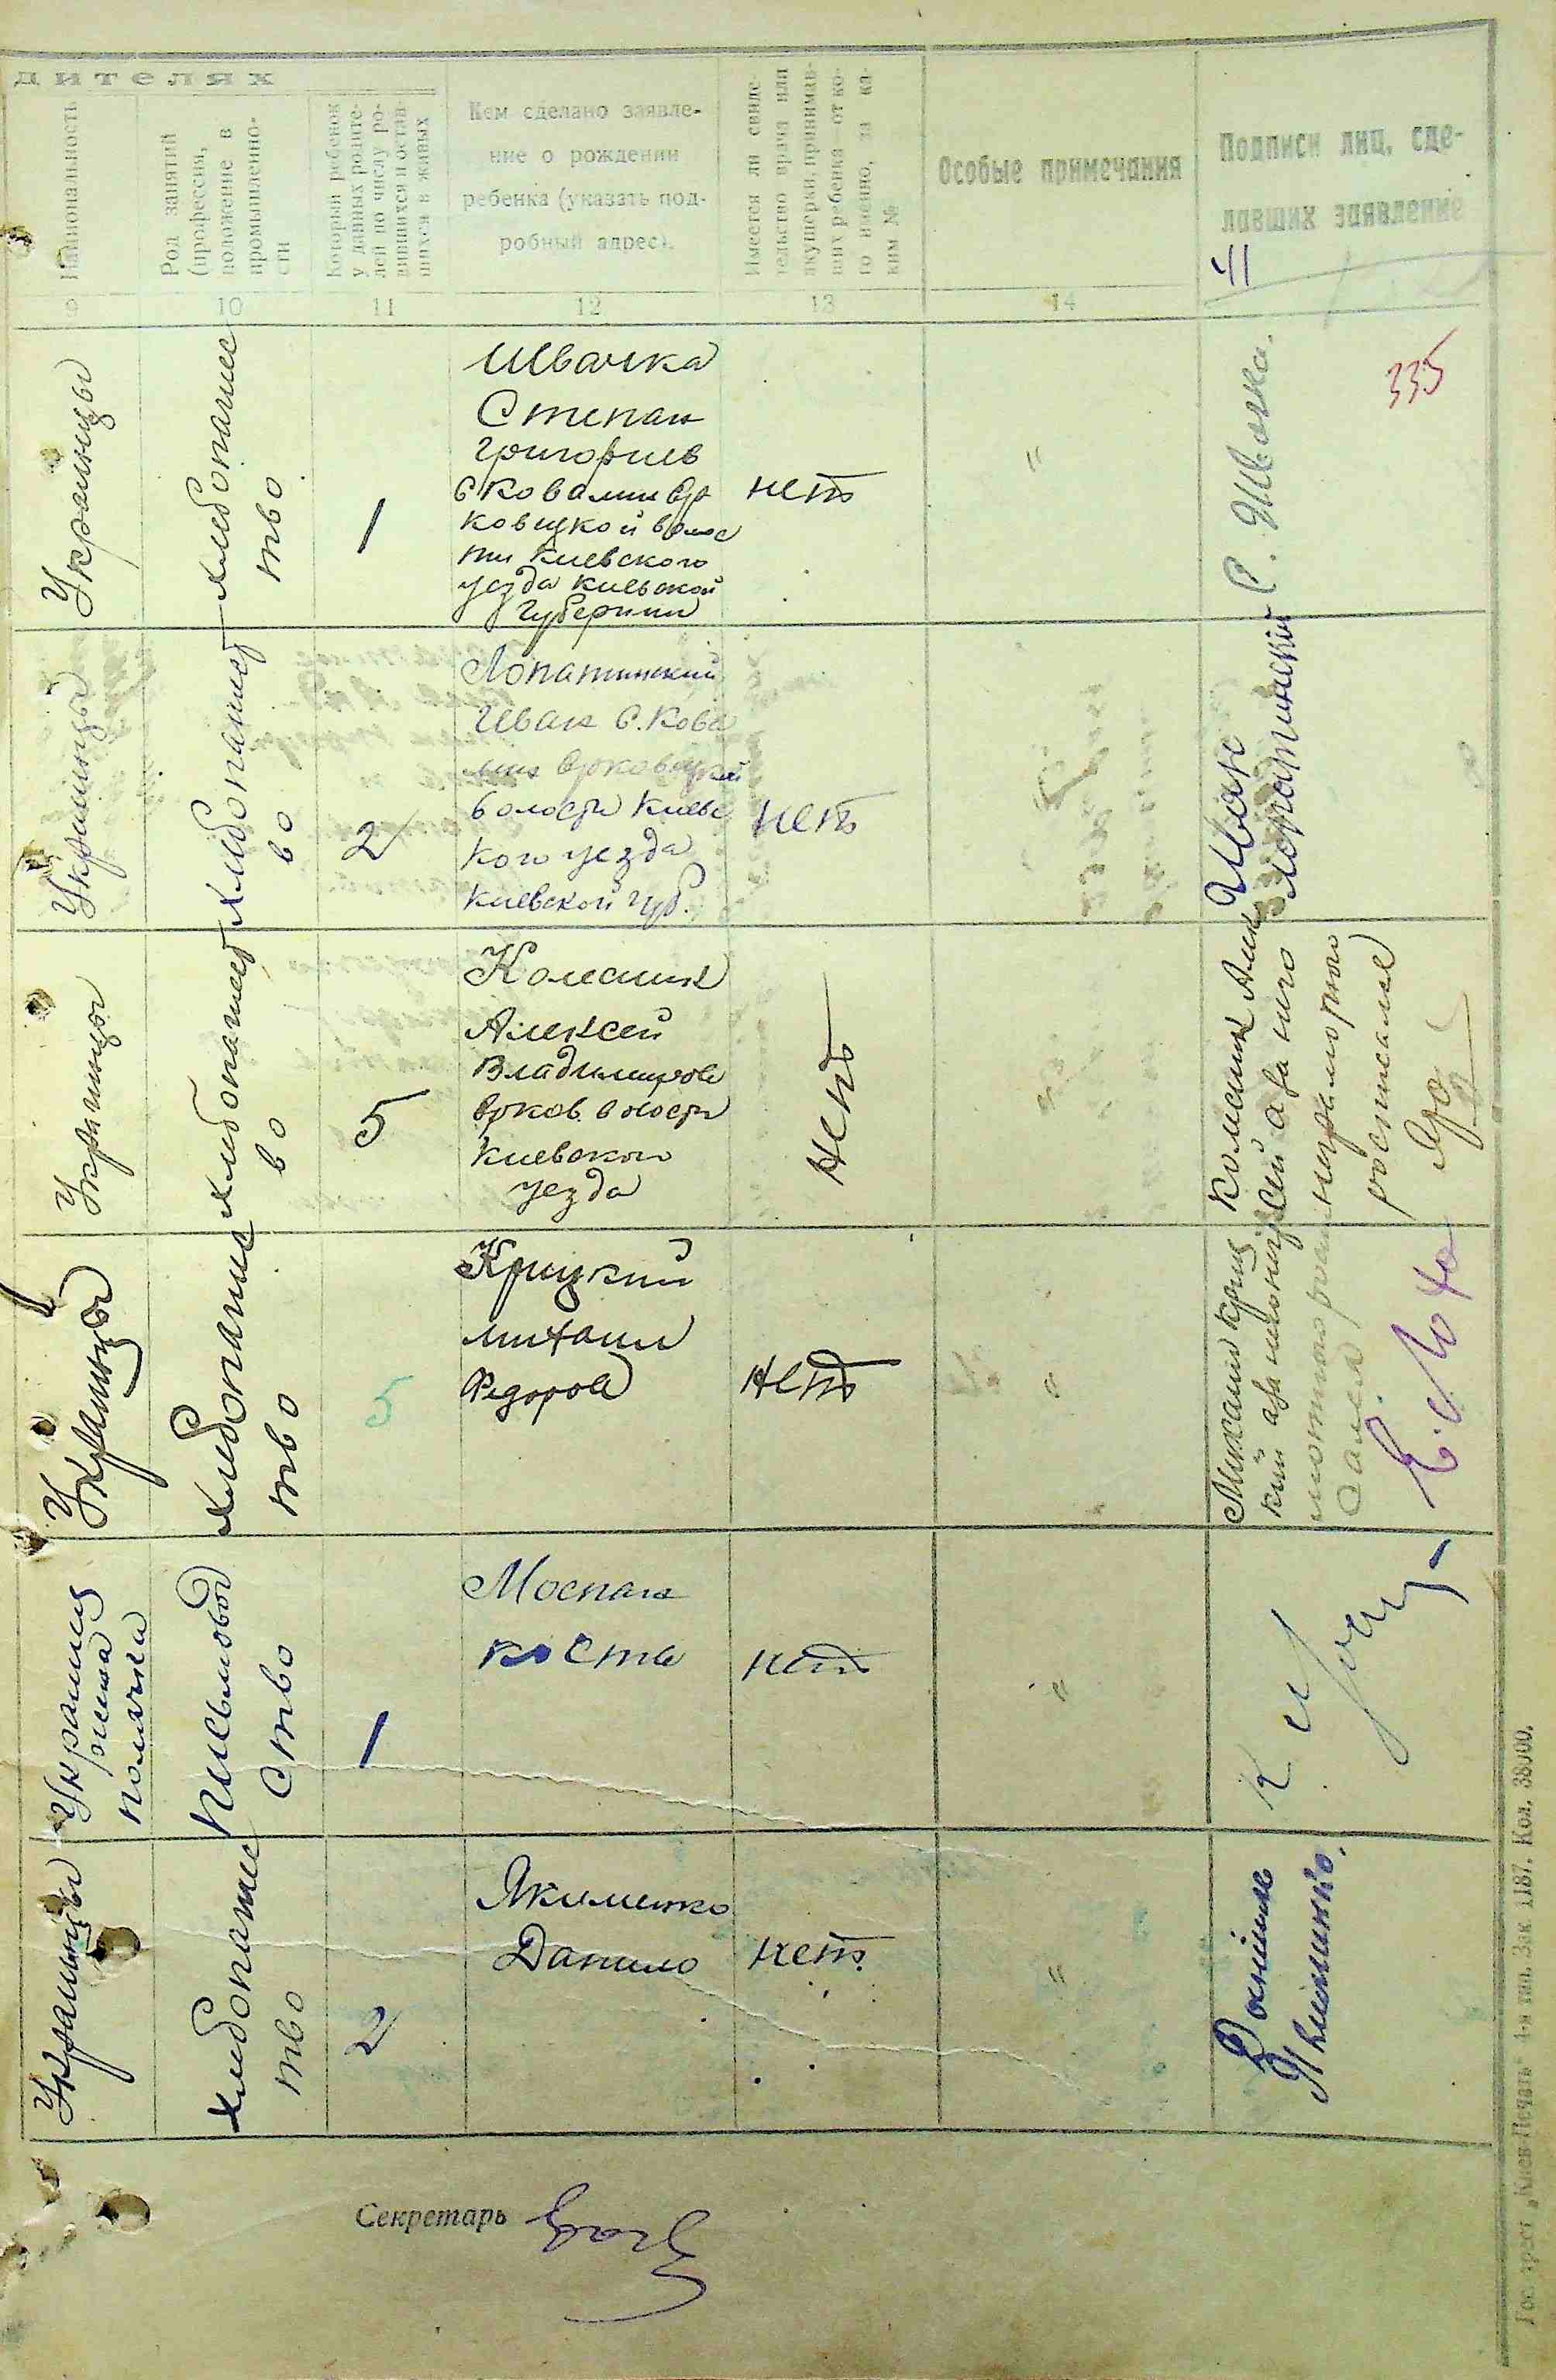 дителях
Национальность
Род занятий
(профессия,
положение в
промышленно-
сти
Который ребенок
у данных родите-
лей по числу ро-
дившихся и остав-
шихся в живых
Кем сделано заявле-
ние о рождении
ребенка (указать под-
робный адрес).
Имеется ли свиде-
тельство врача или
акушерки, принимав-
ших ребенка от ко-
го именно, за ка-
ким №
Особые примечания
Подписи лиц, сде-
лавших заявление
9
10
11
12
13
14
335
Украинцы
хлебопашес
тво
1
Швачка
Степан
Григориев
с Ковалин
волос
ти Киевского
уезда Киевской
Губернии
нетъ
"
С. Швачка.
Украинцы
хлебопашест
во
2
Лопатинский
Иван с. Кова
лин
волости Киевс
кого уезда
Киевской губ.
нетъ
Иван
Лопатинский
Украинцы
хлебопашест
во
5
Колесник
Алексей
Владимиров
волости
Киевского
уезда
нетъ
"
Колесник Алек
сей а за него
неграмотного
росписался
Украинцы
хлебопашес
тво
5
Крицкий
михаил
Федоров
нетъ
"
Михаил Криц
кий а за него негра
мотного роспи
сался
Украинец
полячка
Письмовод
ство
1
Моспан
Кость
нетъ
"
Украинцы
хлебопашес
тво
2
Якименко
Данило
нетъ
"
Данило
Якименко.
Секретарь
Гос. трест „Киев-Печать" 1-я тип. Зак 1187. Кол. 38000.